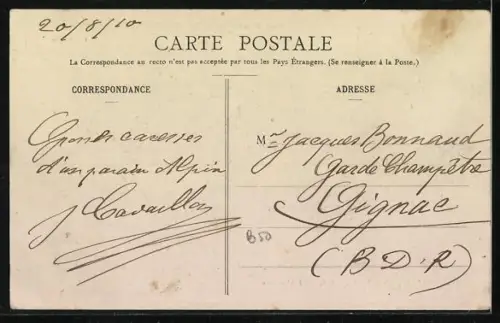 20/8/10
CARTE POSTALE
La Correspondance au recto n'est pas acceptée par tous les Pays Étrangers. (Se renseigner à la Poste.)
CORRESPONDANCE
Grosses caresses
d'un parain Alpin
J Cavaillon
ADRESSE
Mr Jacques Bonnaud
Garde Champêtre
Gignac
(B.D.R)
B50